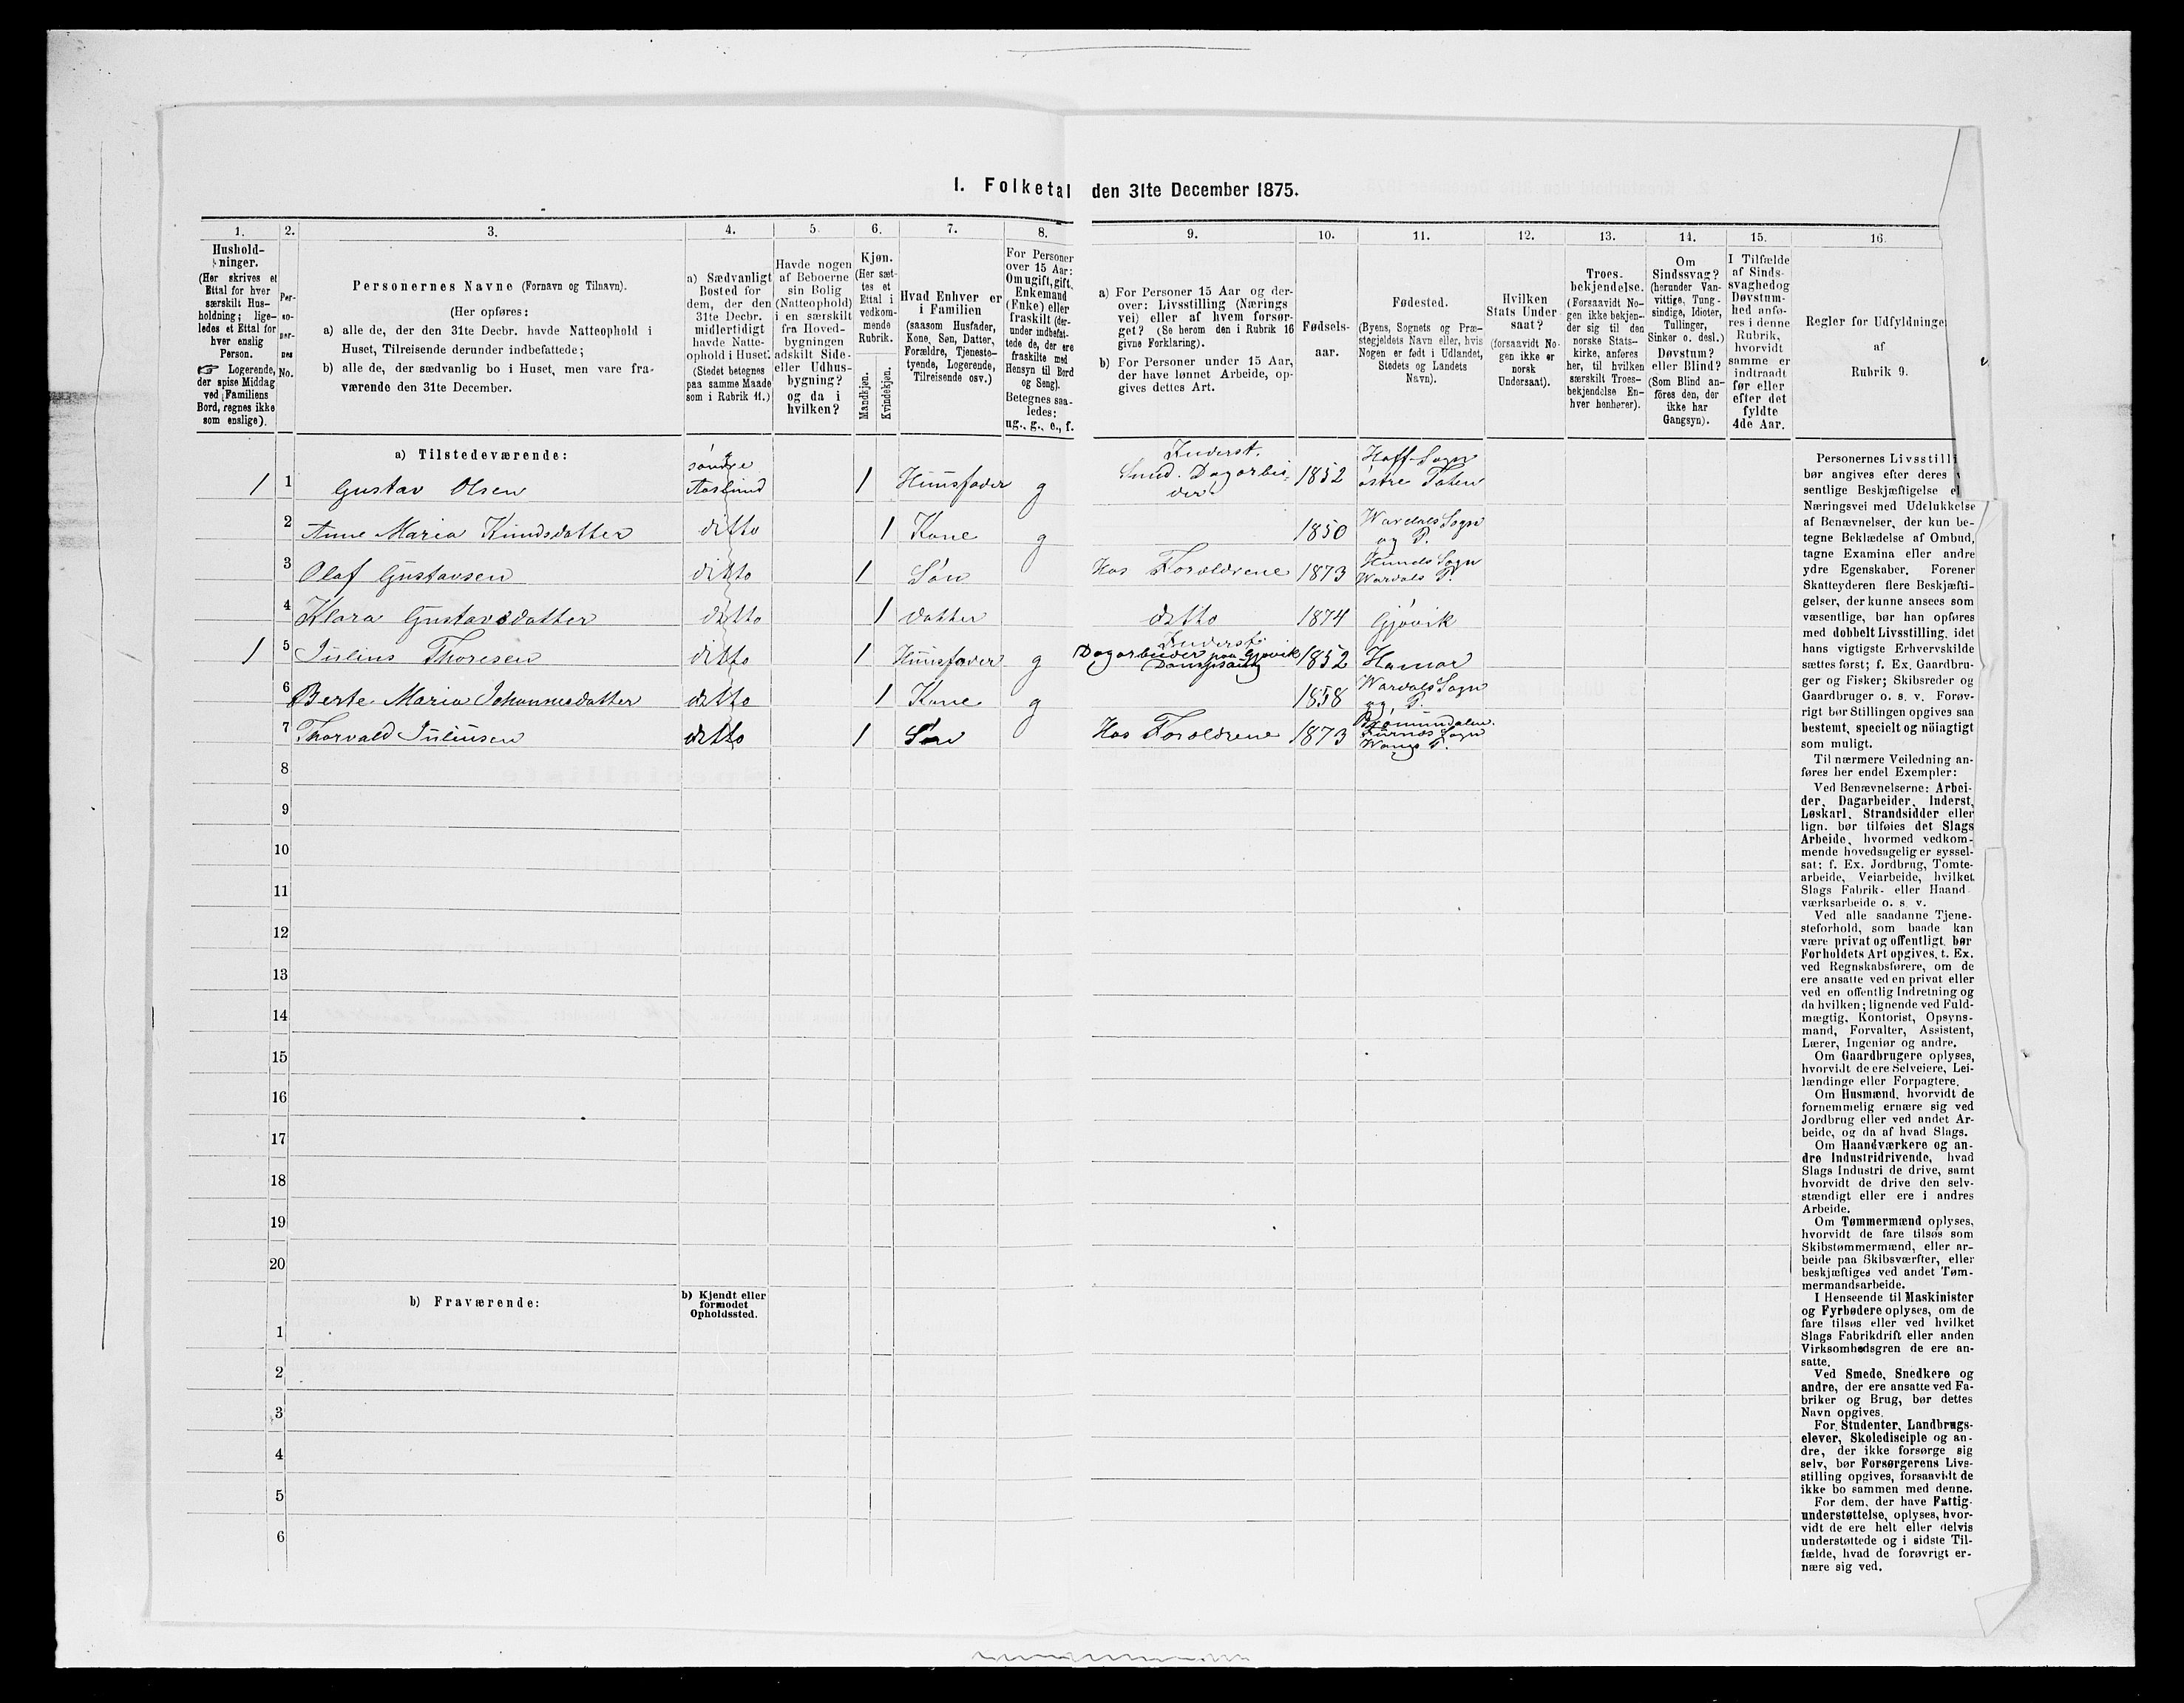 I. Folketal den 31te December 1875.
1.
Hushold-
ninger.
(Her skrives et
Ettal for hver
særskilt Hus-
holdning; lige-
ledes et Ettal for
hver enslig
Person.
☞ Logerende,
der spise Middag
ved Familiens
Bord, regnes ikke
som enslige).
2.
Per-
so-
ner-
nes
No.
3.
Personernes Navne (Fornavn og Tilnavn).
(Her opføres:
a) alle de, der den 31te Decbr. havde Natteophold i
Huset, Tilreisende derunder indbefattede;
b) alle de, der sædvanlig bo i Huset, men vare fra-
værende den 31te December.
4.
a) Sædvanligt
Bosted for
dem, der den
31te Decbr.
midlertidigt
havde Natte-
ophold i Huset.
(Stedet betegnes
paa samme Maade
som i Rubrik 11.)
5.
Havde nogen
af Beboerne
sin Bolig
(Natteophold)
i en særskilt
fra Hoved-
bygningen
adskilt Side-
eller Udhus-
bygning?
og da i
hvilken?
6.
Kjøn.
(Her sæt-
tes et
Ettal i
vedkom-
mende
Rubrik.
Mandkjøn.
Kvindekjøn.
7.
Hvad Enhver er
i Familien
(saasom Husfader,
Kone, Søn, Datter,
Forældre, Tjeneste-
tyende, Logerende,
Tilreisende osv.)
8.
For Personer
over 15 Aar:
Om ugift, gift,
Enkemand
(Enke) eller
fraskilt (der-
under indbefat-
tede de, der ere
fraskilte med
Hensyn til Bord
og Seng).
Betegnes saa-
ledes:
ug., g., e., f.
9.
a) For Personer 15 Aar og der-
over: Livsstilling (Nærings
vei) eller af hvem forsør-
get? (Se herom den i Rubrik 16
givne Forklaring).
b) For Personer under 15 Aar,
der have lønnet Arbeide, op-
gives dettes Art.
10.
Fødsels-
aar.
11.
Fødested.
(Byens, Sognets og Præ-
stegjeldets Navn eller, hvis
Nogen er født i Udlandet,
Stedets og Landets
Navn).
12.
Hvilken
Stats Under
saat?
(forsaavidt No-
gen ikke er
norsk
Undersaat).
13.
Troes-
bekjendelse.
(Forsaavidt No-
gen ikke bekjen-
der sig til den
norske Stats-
kirke, anføres
her, til hvilken
særskilt Troes-
bekjendelse En-
hver henhører).
14.
Om
Sindssvag?
(herunder Van-
vittige, Tung-
sindige, Idioter,
Tullinger,
Sinker o. desl.)
Døvstum?
eller Blind?
(Som Blind an-
føres den, der
ikke har
Gangsyn).
15.
I Tilfælde
af Sinds-
svaghed og
Døvstum-
hed anfø-
res i denne
Rubrik,
hvorvidt
samme er
indtraadt
før eller
efter det
fyldte
4de Aar.
16.
Regler for Udfyldninge
af
Rubrik 9.
a) Tilstedeværende:
1 1 Gustav Olsen søndre Aaslund 1 Huusfader g Inderst. Dagarbeider 1852 Hoff Sogn østre Toten
2 Anne Maria Knudsdatter ditto 1 Kone g 1850 Wardals Sogn og P.
3 Olaf Gustavsen ditto 1 Søn Hos Forældrene 1873 Hunds Sogn Wardals P.
4 Klara Gustavsdatter ditto 1 datter ditto 1874 Gjøvik
1 5 Julius Thoresen ditto 1 Huusfader g Inderst. Dagarbeider paa Gjøvik Dampsaug 1852 Hamar
6 Berte Maria Johannesdatter ditto 1 Kone g 1858 Wardals Sogn og P.
7 Thorvald Juliusen ditto 1 Søn Hos Forældrene 1873 Brumundalen. Furnæs Sogn Wangs P.
8
9
10
11
12
13
14
15
16
17
18
19
20
b) Fraværende:
b) Kjendt eller
formodet
Opholdssted.
1
2
3
4
5
6
Personernes Livsstilli
bør angives efter deres
sentlige Beskjæftigelse el
Næringsvei med Udelukkelse
af Benævnelser, der kun be-
tegne Beklædelse af Ombud,
tagne Examina eller andre
ydre Egenskaber. Forener
Skatteyderen flere Beskjæfti-
gelser, der kunne ansees som
væsentlige, bør han opføres
med dobbelt Livsstilling, idet
hans vigtigste Erhvervskilde
sættes først; f. Ex. Gaardbru-
ger og Fisker; Skibsreder og
Gaardbruger o. s. v. Forøv-
rigt bør Stillingen opgives saa
bestemt, specielt og nøiagtigt
som muligt.
Til nærmere Veiledning an-
føres her endel Exempler:
Ved Benævnelserne: Arbei-
der, Dagarbeider, Inderst,
Løskarl, Strandsidder eller
lign. bør tilføies det Slags
Arbeide, hvormed vedkom-
mende hovedsagelig er syssel-
sat; f. Ex. Jordbrug, Tomte-
arbeide, Veiarbeide, hvilket
Slags Fabrik- eller Haand-
værksarbeide o. s. v.
Ved alle saadanne Tjene-
steforhold, som baade kan
være privat og offentligt, bør
Forholdets Art opgives, t. Ex.
ved Regnskabsførere, om de
ere ansatte ved en privat eller
ved en offentlig Indretning og
da hvilken; lignende ved Fuld-
mægtig, Kontorist, Opsyns-
mand, Forvalter, Assistent,
Lærer, Ingeniør og andre.
Om Gaardbrugere oplyses,
hvorvidt de ere Selveiere, Lei-
lændinge eller Forpagtere.
Om Husmænd, hvorvidt de
fornemmelig ernære sig ved
Jordbrug eller ved andet Ar-
beide, og da af hvad Slags.
Om Haandværkere og an-
dre Industridrivende, hvad
Slags Industri de drive, samt
hvorvidt de drive den selv-
stændigt eller ere i andres
Arbeide.
Om Tømmermænd oplyses,
hvorvidt de fare tilsøs som
Skibstømmermænd, eller ar-
beide paa Skibsværfter, eller
beskjæftiges ved andet Tøm-
mermandsarbeide.
I Henseende til Maskinister
og Fyrbødere oplyses, om de
fare tilsøs eller ved hvilket
Slags Fabrikdrift eller anden
Virksomhedsgren de ere an-
satte.
Ved Smede, Snedkere og
andre, der ere ansatte ved Fa-
briker og Brug, bør dettes
Navn opgives.
For Studenter, Landbrugs-
elever, Skoledisciple og an-
dre, der ikke forsørge sig
selv, bør Forsørgerens Livs-
stilling opgives, forsaavidt de
ikke bo sammen med denne.
For dem, der have Fattig-
understøttelse, oplyses, hvor-
vidt de ere helt eller delvis
understøttede og i sidste Til-
fælde, hvad de forøvrigt er-
nære sig ved.